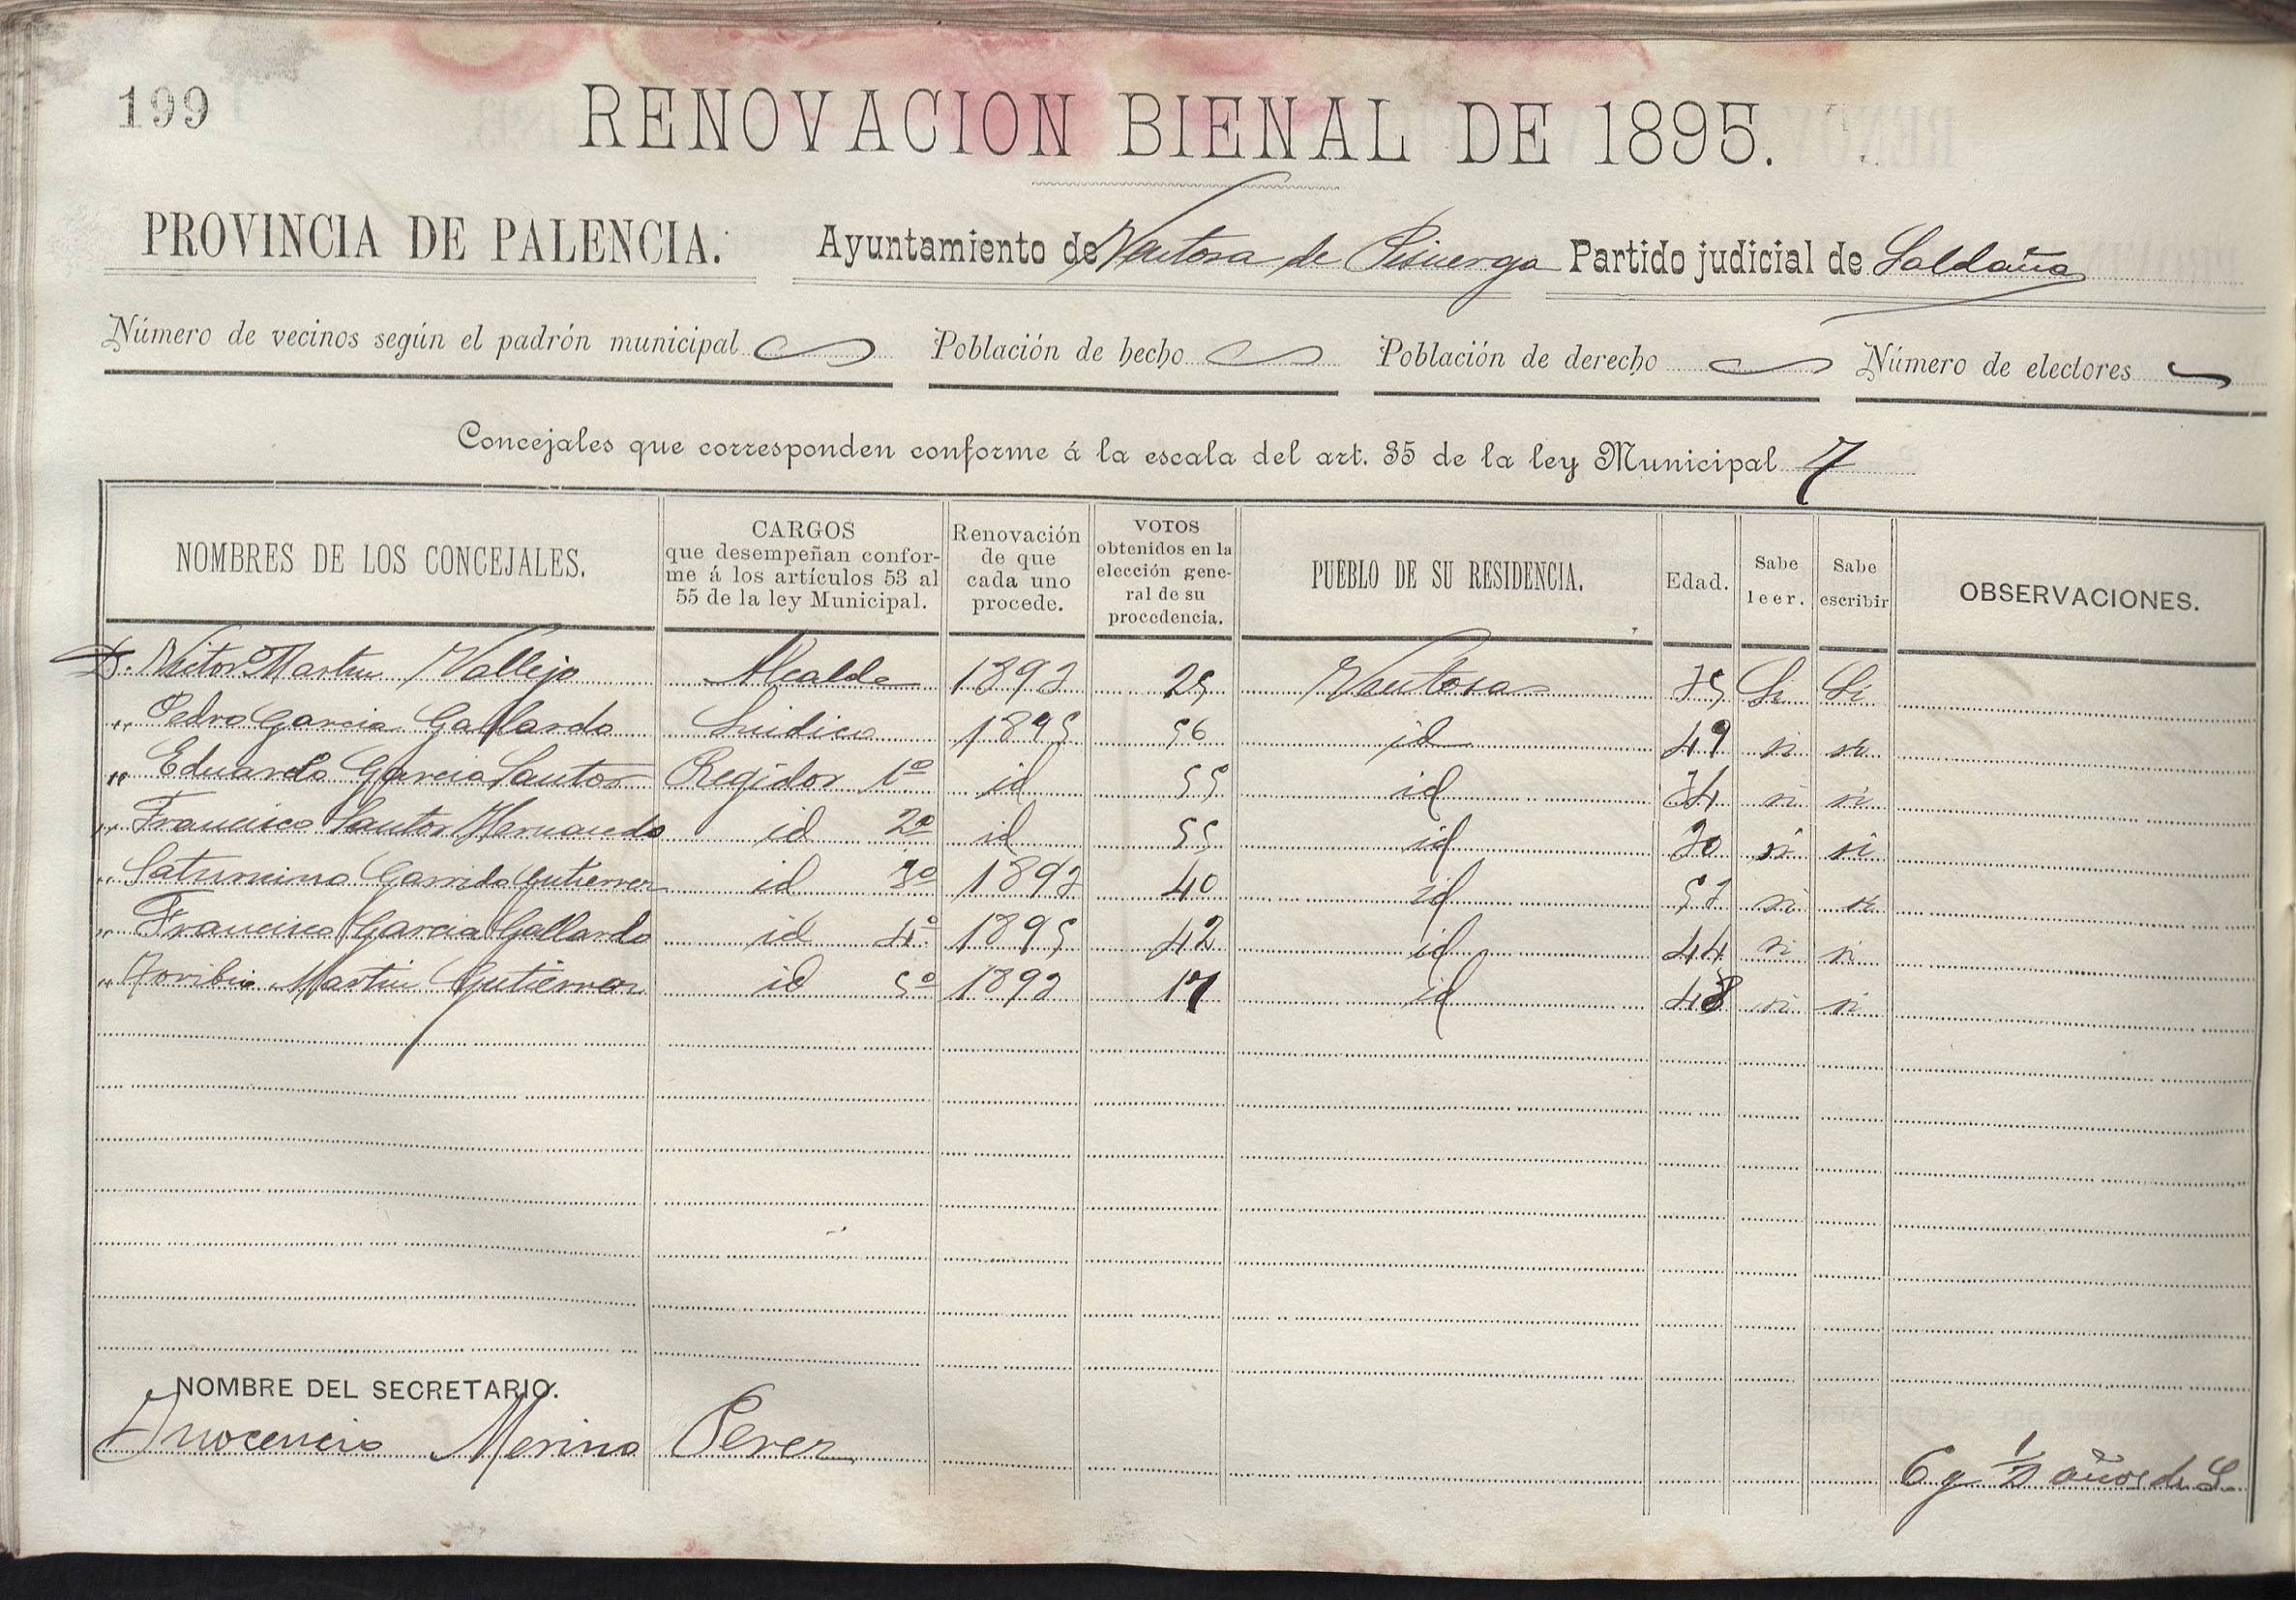 199
RENOVACION BIENAL DE 1895.
PROVINCIA DE PALENCIA. Ayuntamiento de Ventosa de Pisuerga Partido judicial de Saldaña
Número de vecinos según el padrón municipal Población de hecho Población de derecho Número de electores
Concejales que corresponden conforme á la escala del art. 35 de la ley Municipal 7
NOMBRES DE LOS CONCEJALES.
CARGOS
que desempeñan confor-
me á los artículos 53 al
55 de la ley Municipal.
Renovación
de que
cada uno
procede.
VOTOS
obtenidos en la
elección gene-
ral de su
procedencia.
PUEBLO DE SU RESIDENCIA.
Edad.
Sabe
leer.
Sabe
escribir
OBSERVACIONES.
D. Victor Martin Vallejo Alcalde 1893 25 Ventosa 35 Si Si
" Pedro Garcia Gallardo Sindico 1895 56 id 49 si si
" Eduardo Garcia Santos Regidor 1º id 55 id 34 si si
" Francisco Santos Hernando id 2º id 55 id 30 si si
" Saturnino Garrido Gutierrez id 3º 1893 40 id 53 si si
" Francisco Garcia Gallardo id 4º 1895 42 id 44 si si
" Toribio Martin Gutierrez id 5º 1893 17 id 48 si si
NOMBRE DEL SECRETARIO.
Inocencio Merino Perez
6 y 1/2 años de S.